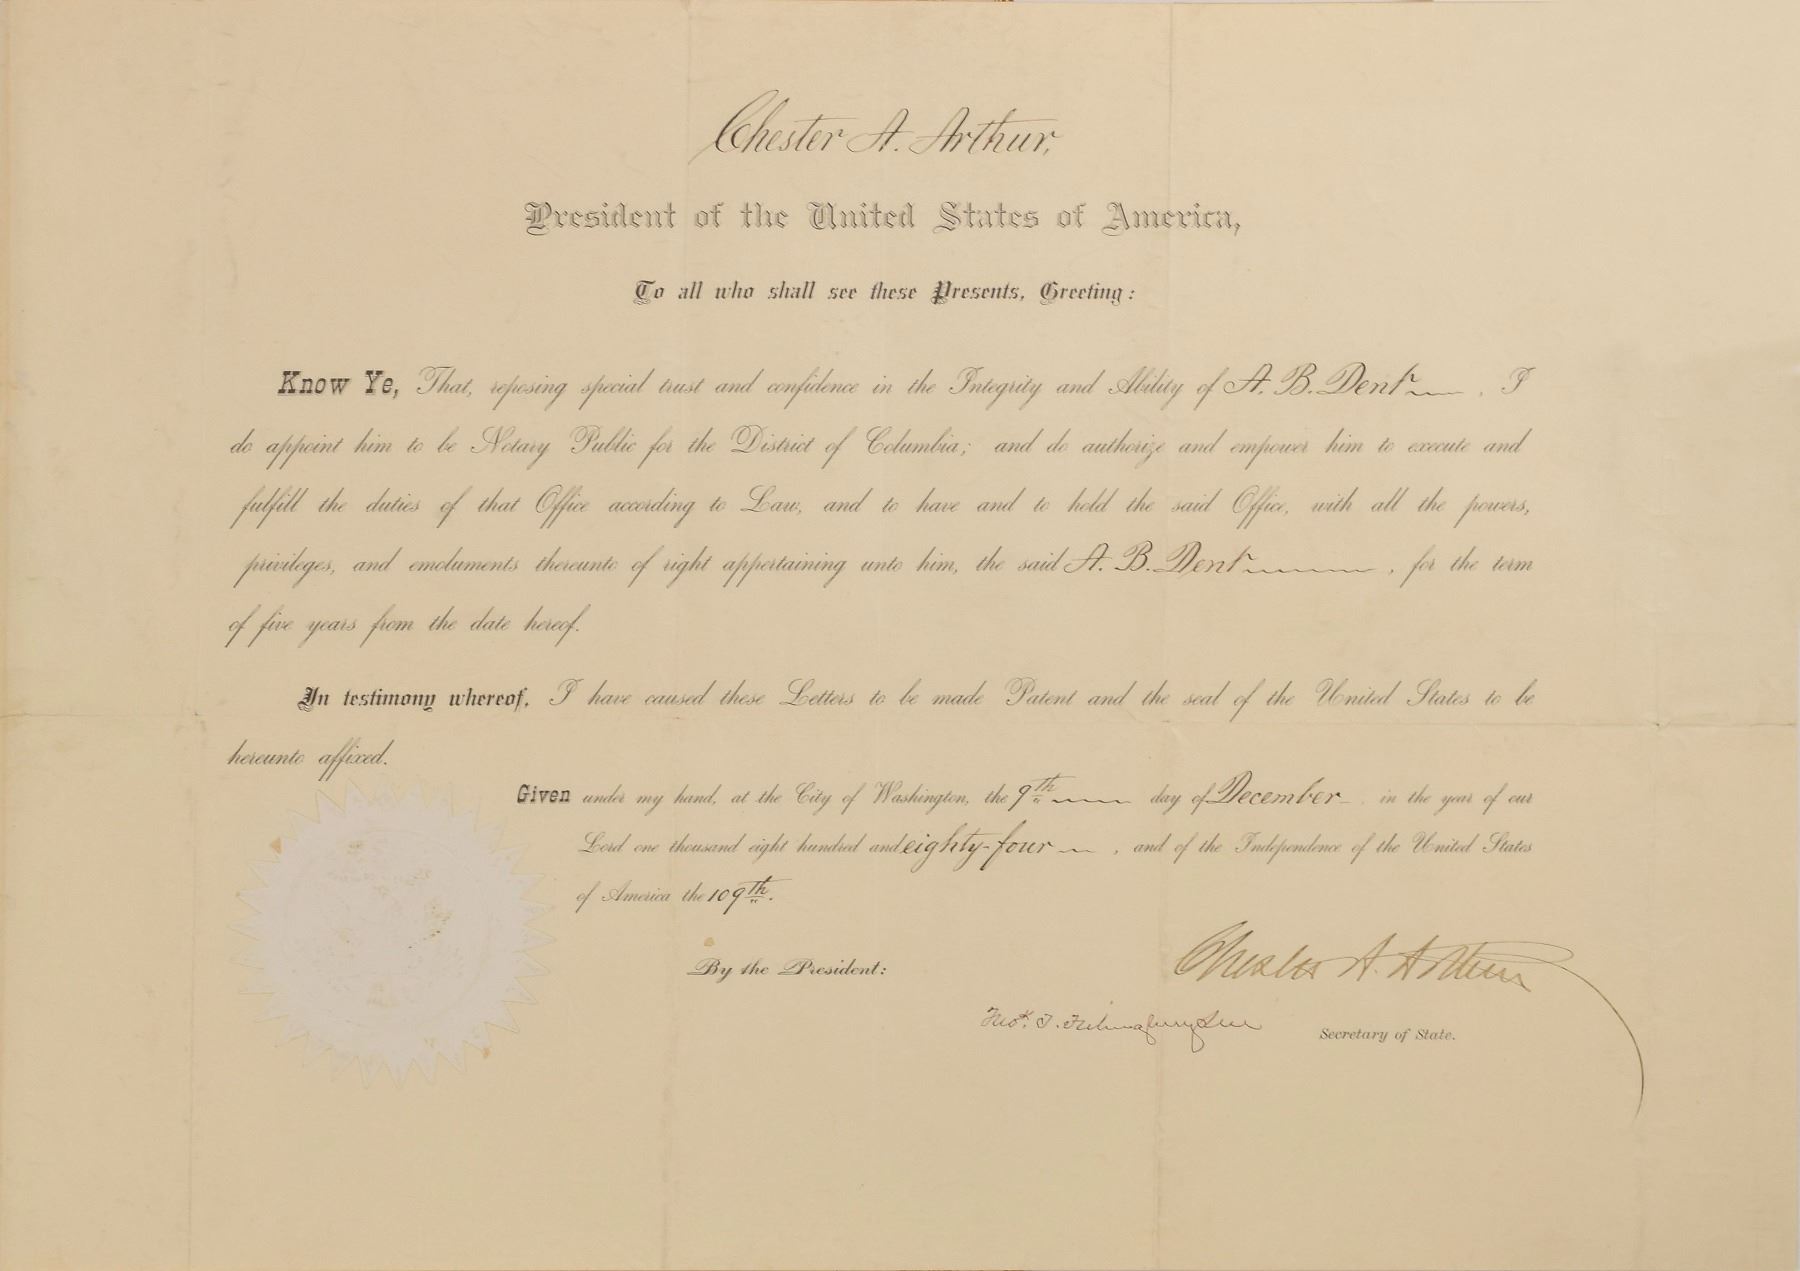 Chester A. Arthur,
President of the United States of America,
To all who shall see these Presents, Greeting:
Know Ye, That, reposing special trust and confidence in the Integrity and Ability of A. B. Dent, I
do appoint him to be Notary Public for the District of Columbia; and do authorize and empower him to execute and
fulfill the duties of that Office according to Law, and to have and to hold the said Office, with all the powers,
privileges, and emoluments thereunto of right appertaining unto him, the said A. B. Dent, for the term
of five years from the date hereof.
In testimony whereof, I have caused these Letters to be made Patent and the seal of the United States to be
hereunto affixed.
Given under my hand, at the City of Washington, the 9th day of December, in the year of our
Lord one thousand eight hundred and eighty-four, and of the Independence of the United States
of America the 109th.
Chester A. Arthur
By the President:
Fredk. T. Frelinghuysen
Secretary of State.